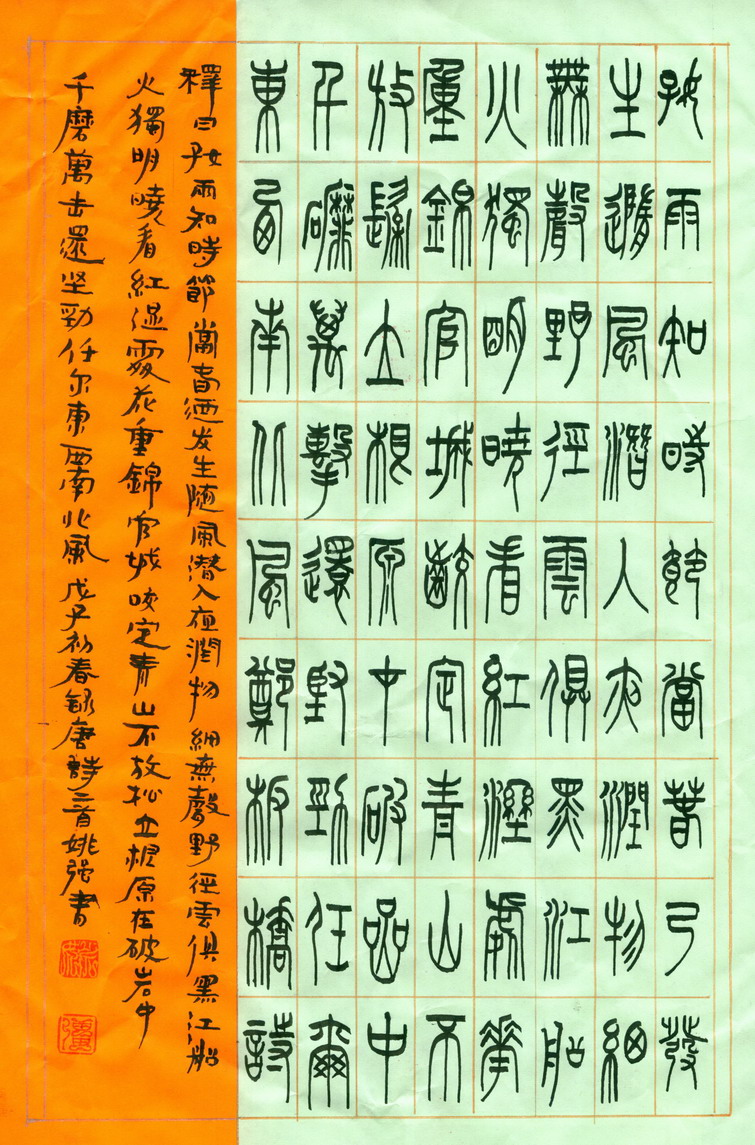 好雨知時節當春乃發
生隨風潛入夜潤物細
無聲野徑雲俱黑江船
火獨明曉看紅溼處華
重錦官城齩定青山不
放鬆立根原在破嵒中
千磨萬擊還堅勁任爾
東西南北風鄭板橋詩
釋曰好雨知時節當春迺发生随風潜入夜潤物細無聲野径雲俱黑江船
火獨明曉看紅溼處花重錦官城咬定青山不放松立根原在破岩中
千磨萬击還坚勁任尔東西南北風戊子初春録唐詩二首姚强書